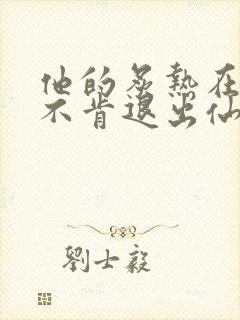 他的炙熱在
不肯退出仙
劉士毅